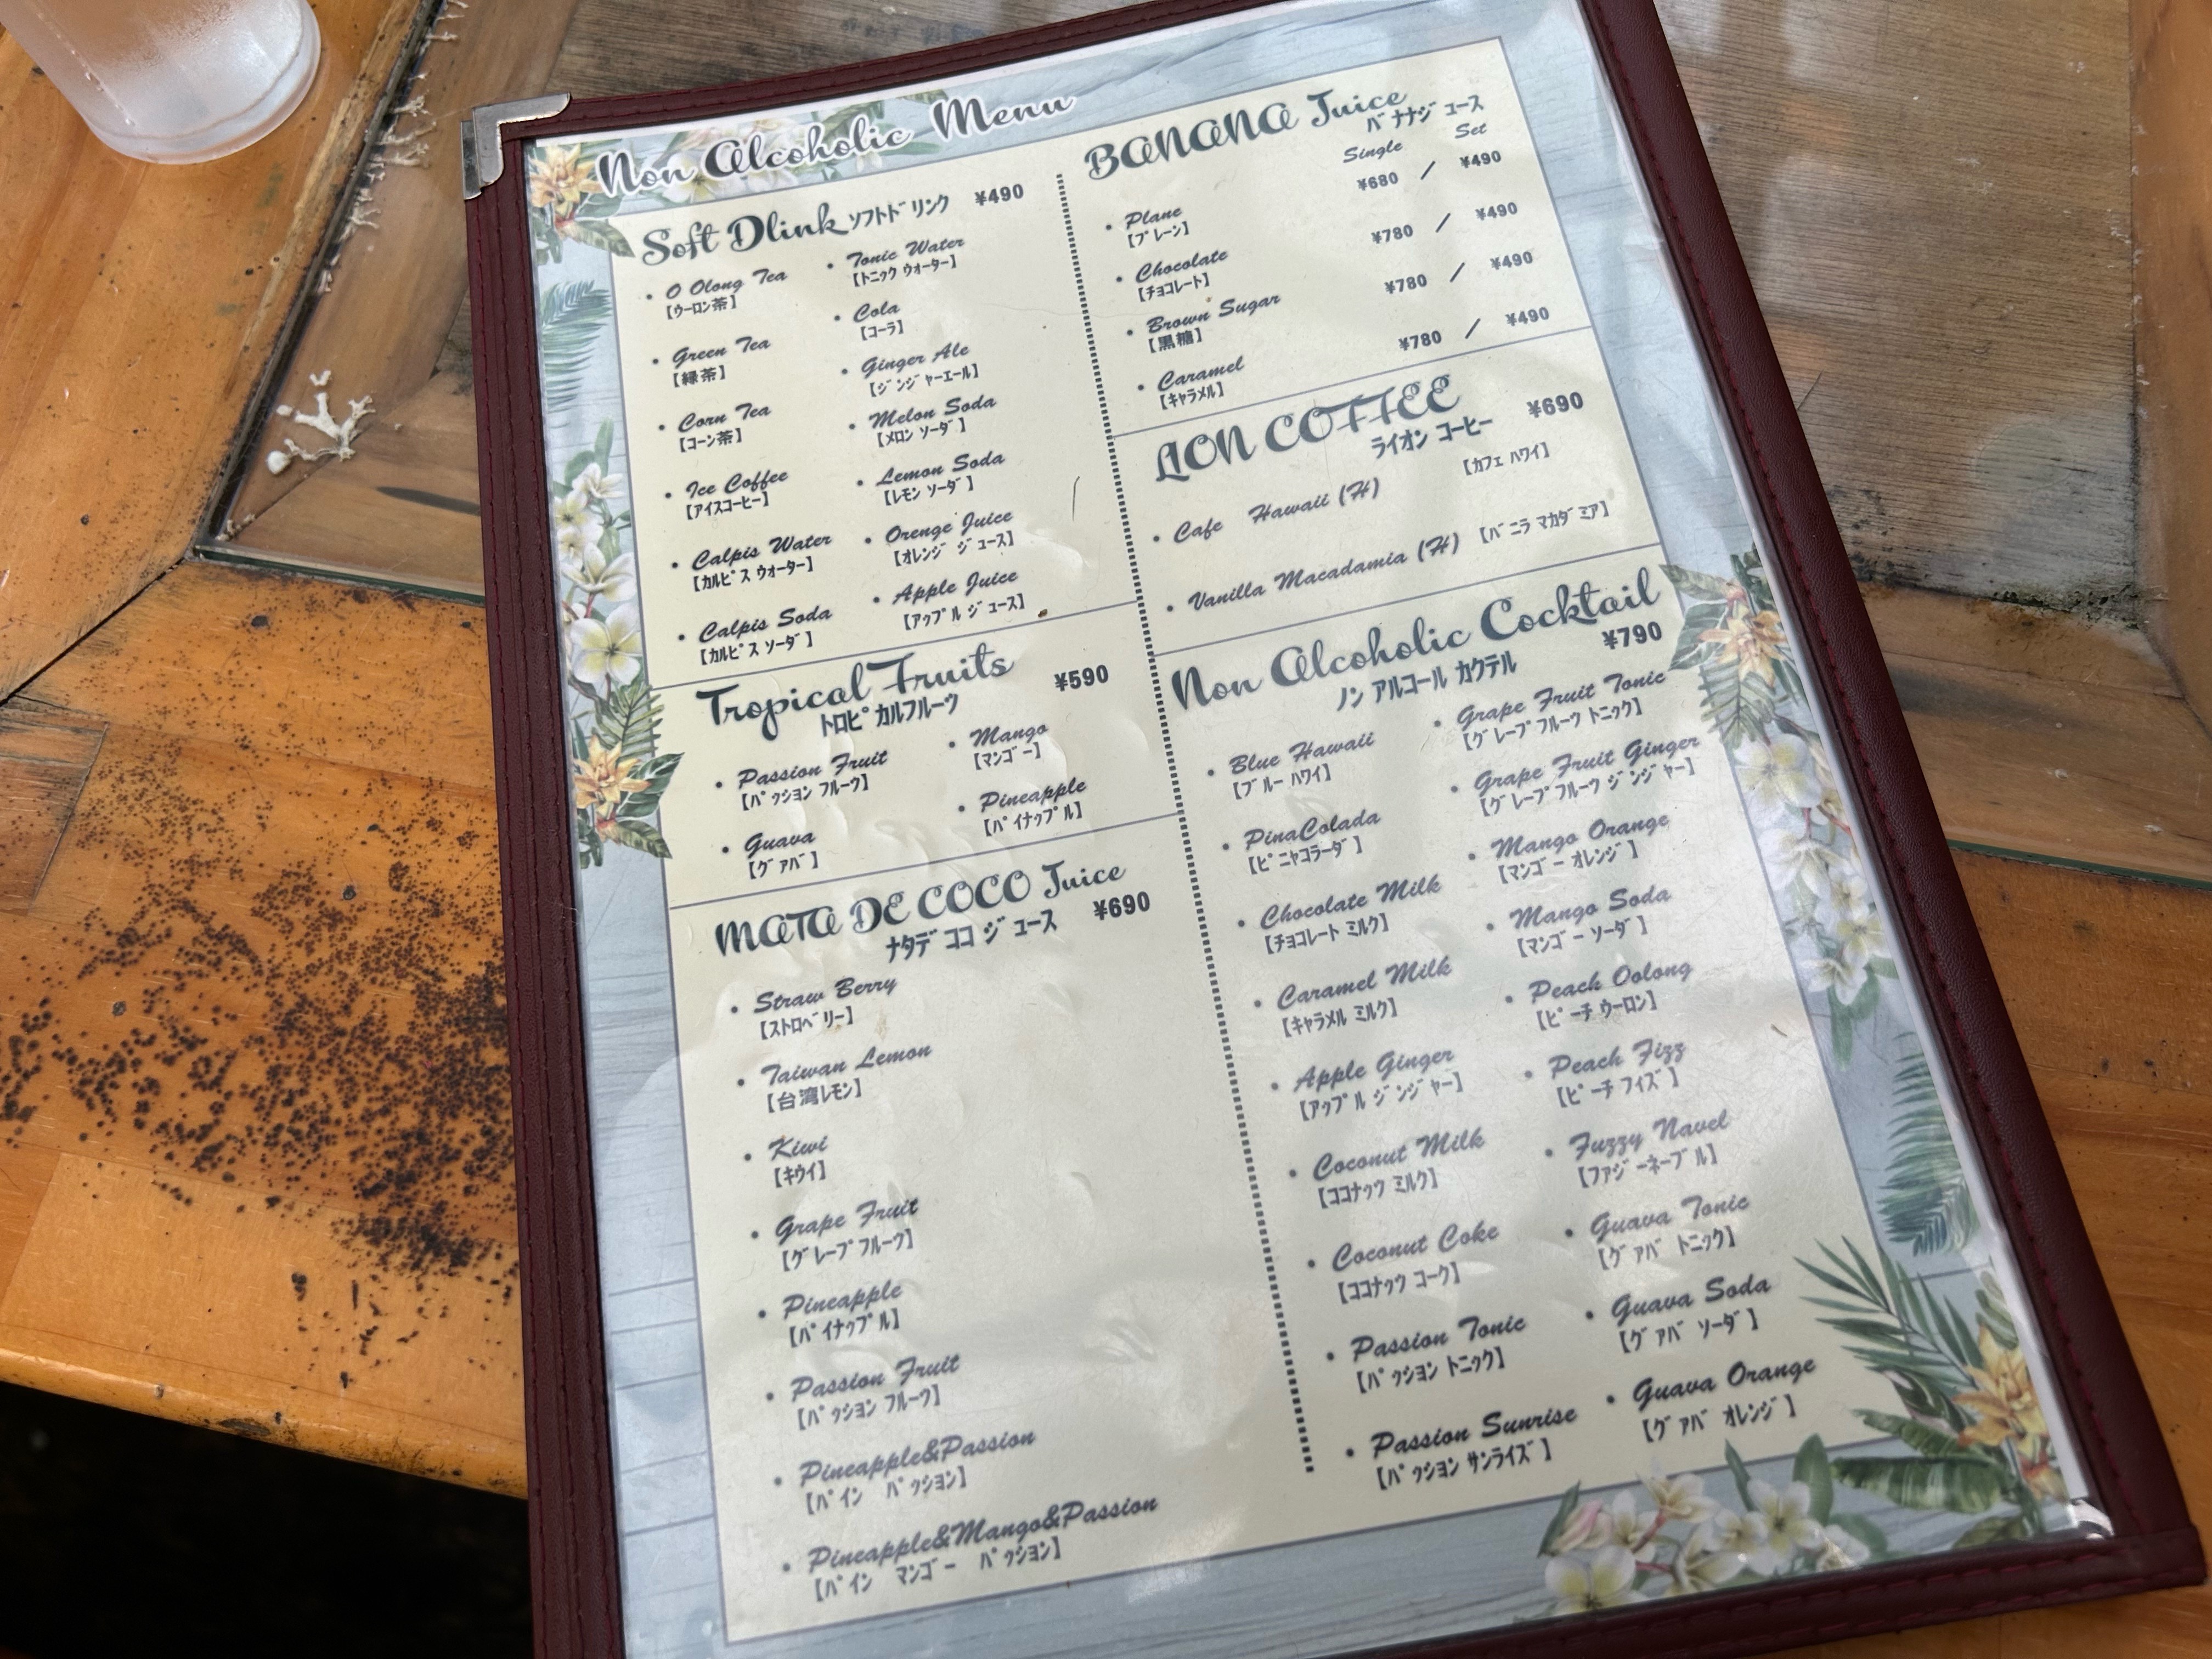 Non Alcoholic Menu
Soft Dlink ソフトドリンク ¥490
・O Olong Tea
【ウーロン茶】
・Green Tea
【緑茶】
・Corn Tea
【コーン茶】
・Ice Coffee
【アイスコーヒー】
・Calpis Water
【カルピス ウォーター】
・Calpis Soda
【カルピス ソーダ】
・Tonic Water
【トニック ウォーター】
・Cola
【コーラ】
・Ginger Ale
【ジンジャーエール】
・Melon Soda
【メロン ソーダ】
・Lemon Soda
【レモン ソーダ】
・Orenge Juice
【オレンジ ジュース】
・Apple Juice
【アップル ジュース】
Tropical Fruits ¥590
トロピカルフルーツ
・Passion Fruit
【パッション フルーツ】
・Guava
【グァバ】
・Mango
【マンゴー】
・Pineapple
【パイナップル】
MATA DE COCO Juice
ナタデ ココ ジュース ¥690
・Straw Berry
【ストロベリー】
・Taiwan Lemon
【台湾レモン】
・Kiwi
【キウイ】
・Grape Fruit
【グレープフルーツ】
・Pineapple
【パイナップル】
・Passion Fruit
【パッション フルーツ】
・Pineapple&Passion
【パイン パッション】
・Pineapple&Mango&Passion
【パイン マンゴー パッション】
BANANA Juice
バナナジュース
Single Set
・Plane ¥680 / ¥490
【プレーン】
・Chocolate ¥780 / ¥490
【チョコレート】
・Brown Sugar ¥780 / ¥490
【黒糖】
・Caramel ¥780 / ¥490
【キャラメル】
LION COFFEE ¥690
ライオン コーヒー
・Cafe Hawaii (H) 【カフェ ハワイ】
・Vanilla Macadamia (H) 【バニラ マカダミア】
Non Alcoholic Cocktail
ノン アルコール カクテル ¥790
・Blue Hawaii
【ブルー ハワイ】
・PinaColada
【ピニャコラーダ】
・Chocolate Milk
【チョコレート ミルク】
・Caramel Milk
【キャラメル ミルク】
・Apple Ginger
【アップル ジンジャー】
・Coconut Milk
【ココナッツ ミルク】
・Coconut Coke
【ココナッツ コーク】
・Passion Tonic
【パッション トニック】
・Passion Sunrise
【パッション サンライズ】
・Grape Fruit Tonic
【グレープフルーツ トニック】
・Grape Fruit Ginger
【グレープフルーツ ジンジャー】
・Mango Orange
【マンゴー オレンジ】
・Mango Soda
【マンゴー ソーダ】
・Peach Oolong
【ピーチ ウーロン】
・Peach Fizz
【ピーチ フィズ】
・Fuzzy Navel
【ファジーネーブル】
・Guava Tonic
【グァバ トニック】
・Guava Soda
【グァバ ソーダ】
・Guava Orange
【グァバ オレンジ】